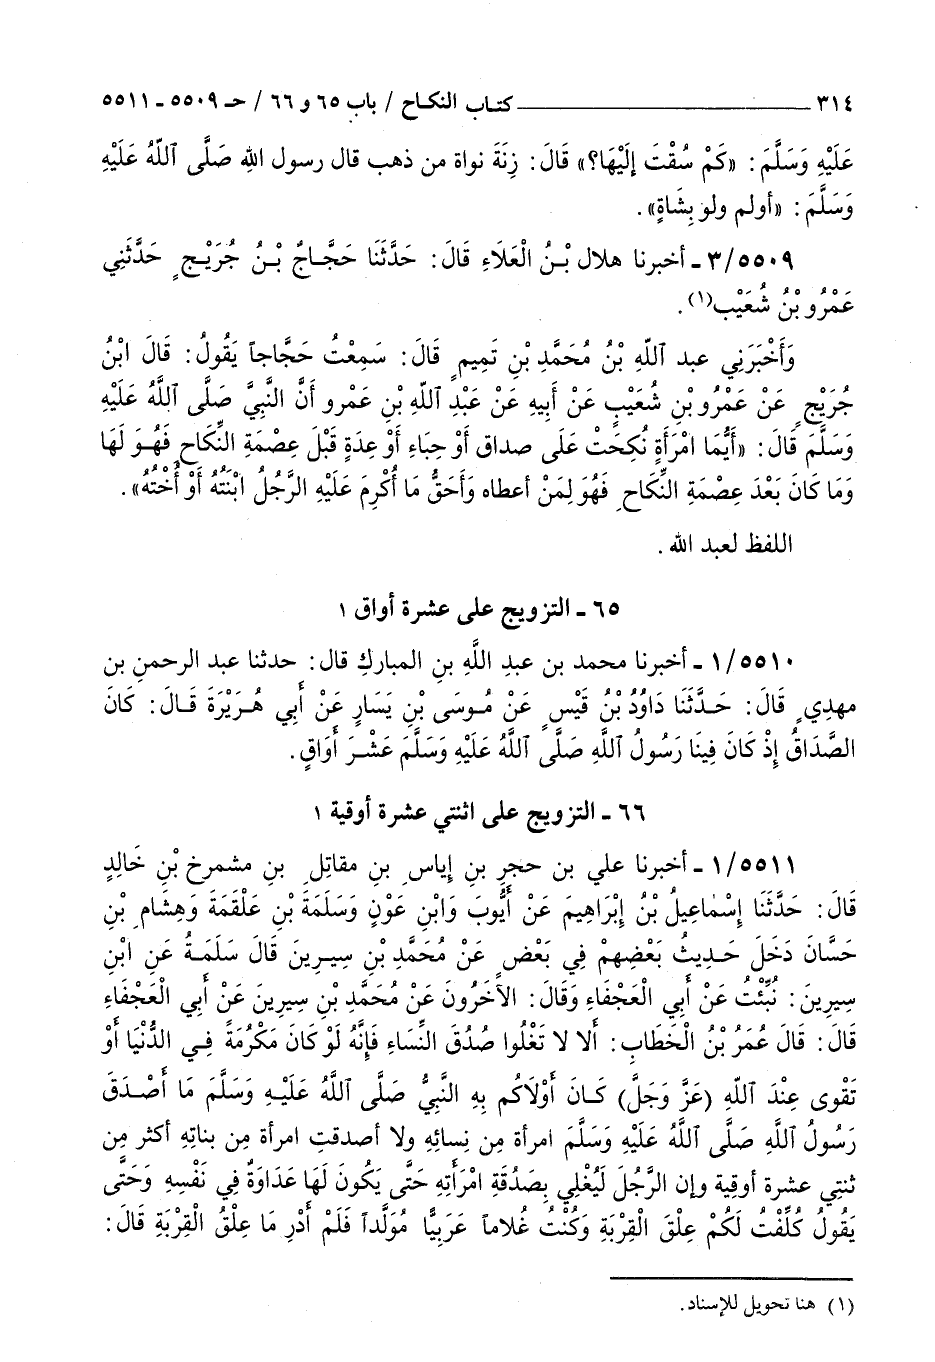 ٣١٤ ــــــــ كتاب النكاح / باب ٦٥ و ٦٦ / حـ ٥٥٠٩ ـ ٥٥١١
عَلَيْهِ وَسَلَّمَ: «كَمْ سُقْتَ إِلَيْهَا؟» قَالَ: زِنَةَ نواة من ذهب قال رسول الله صَلَّى ٱللَّهُ عَلَيْهِ
وَسَلَّمَ: «أولم ولو بِشَاةٍ».
٣/٥٥٠٩ ـ أخبرنا هلال بْنُ الْعَلَاءِ قَالَ: حَدَّثَنَا حَجَّاجُ بْنُ جُرَيْجٍ حَدَّثَنِي
عَمْرُو بْنُ شُعَيْبٍ(١).
وَأَخْبَرَنِي عبد اللَّهِ بْنُ مُحَمَّدِ بْنِ تَمِيمٍ قَالَ: سَمِعْتُ حَجَّاجاً يَقُولُ: قَالَ ابْنُ
جُرَيْجٍ عَنْ عَمْرُو بْنِ شُعَيْبٍ عَنْ أَبِيهِ عَنْ عَبْدِ اللَّهِ بْنِ عَمْرو أَنَّ النَّبِيَّ صَلَّى ٱللَّهُ عَلَيْهِ
وَسَلَّمَ قَالَ: «أَيُّمَا امْرَأَةٍ نُكِحَتْ عَلَى صداق أَوْ حِبَاءٍ أَوْ عِدَةٍ قَبْلَ عِصْمَةِ النِّكَاحِ فَهُوَ لَهَا
وَمَا كَانَ بَعْدَ عِصْمَةِ النِّكَاحِ فَهُوَ لِمَنْ أعطاه وَأَحَقُّ مَا أُكْرِمَ عَلَيْهِ الرَّجُلُ ابْنَتُهُ أَوْ أُخْتُهُ».
اللفظ لعبد الله.
٦٥ ـ التزويج على عشرة أواق ١
١/٥٥١٠ ـ أخبرنا محمد بن عبدِ اللَّهِ بنِ المباركِ قال: حدثنا عبد الرحمن بن
مهدِيٍ قَالَ: حَدَّثَنَا دَاوُدُ بْنُ قَيْسٍ عَنْ مُوسَى بْنِ يَسَارٍ عَنْ أَبِي هُرَيْرَةَ قَالَ: كَانَ
الصَّدَاقُ إِذْ كَانَ فِينَا رَسُولُ ٱللَّهِ صَلَّى ٱللَّهُ عَلَيْهِ وَسَلَّمَ عَشْرَ أَوَاقٍ.
٦٦ ـ التزويج على اثنتي عشرة أوقية ١
١/٥٥١١ ـ أخبرنا علي بن حجرِ بنِ إِياسِ بنِ مقاتلِ بنِ مشمرخ بْنِ خَالِدٍ
قَالَ: حَدَّثَنَا إِسْمَاعِيلُ بْنُ إِبْرَاهِيمَ عَنْ أَيُّوبَ وَابْنِ عَوْنٍ وَسَلَمَةَ بْنِ عَلْقَمَةَ وَهِشَامِ بْنِ
حَسَّانَ دَخَلَ حَدِيثُ بَعْضِهِمْ فِي بَعْضٍ عَنْ مُحَمَّدِ بْنِ سِيرِينَ قَالَ سَلَمَةُ عَنِ ابْنِ
سِيرِينَ: نُبِّئْتُ عَنْ أَبِي الْعَجْفَاءِ وَقَالَ: الآخَرُونَ عَنْ مُحَمَّدِ بْنِ سِيرِينَ عَنْ أَبِي الْعَجْفَاءِ
قَالَ: قَالَ عُمَرُ بْنُ الْخَطَّابِ: أَلا لا تَغْلُوا صُدُقَ النِّسَاءِ فَإِنَّهُ لَوْ كَانَ مَكْرُمَةً فِي الدُّنْيَا أَوْ
تَقْوى عِنْدَ ٱللَّهِ (عَزَّ وَجَلَّ) كَانَ أَوْلَاكُم بِهِ النَّبِيُّ صَلَّى ٱللَّهُ عَلَيْهِ وَسَلَّمَ مَا أَصْدَقَ
رَسُولُ ٱللَّهِ صَلَّى ٱللَّهُ عَلَيْهِ وَسَلَّمَ امرأة مِن نِسائِهِ ولا أصدقتِ امرأة مِن بناتِهِ أكثر مِن
ثنتي عشرة أوقية وإن الرَّجُلَ لَيُغْلِي بِصَدُقَةِ امْرَأَتِهِ حَتَّى يَكُونَ لَهَا عَدَاوَةٌ فِي نَفْسِهِ وَحَتَّى
يَقُولُ كُلِّفْتُ لَكُمْ عِلْقَ الْقِرْبَةِ وَكُنْتُ غُلاماً عَرَبِيًّا مُوَلَّداً فَلَمْ أَدْرِ مَا عِلْقُ الْقِرْبَةِ قَالَ:
(١) هنا تحويل للإسناد.